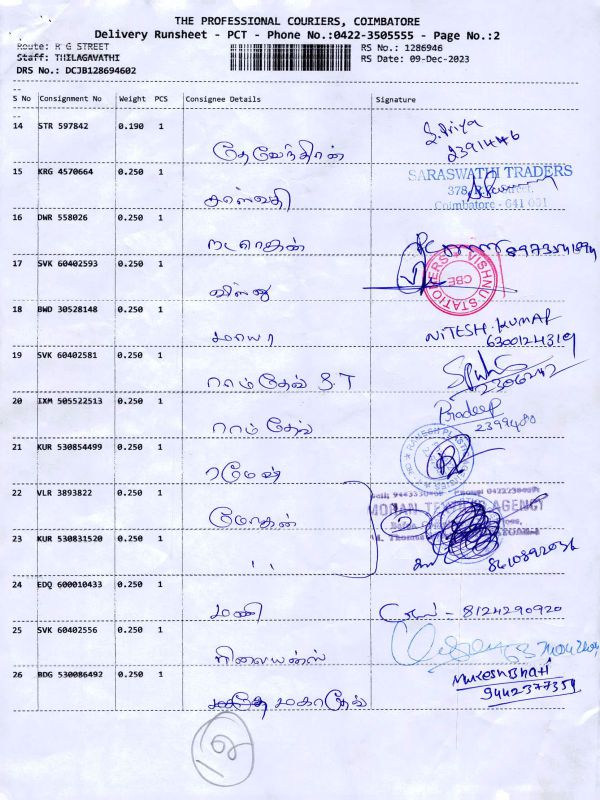 THE PROFESSIONAL COURIERS, COIMBATORE
Delivery Runsheet - PCT - Phone No.:0422-3505555 - Page No.:2
Route: R G STREET
RS No.: 1286946
Staff: THILAGAVATHI
RS Date: 09-Dec-2023
DRS No.: DCJB128694602
S No Consignment No Weight PCS Consignee Details Signature
14 STR 597842 0.190 1
தேவேந்திரன்
S. Priya
2391446
15 KRG 4570664 0.250 1
SARASWATHI TRADERS
378,
Coimbatore - 641 001
சரஸ்வதி
16 DWR 558026 0.250 1
நடராஜன்
17 SVK 60402593 0.250 1
VISHNU STATIONERS
CBE
விஷ்ணு
18 BWD 30528148 0.250 1
மாயா
NITESH. KUMAR
19 SVK 60402581 0.250 1
ராம்தேவ் S.T
2306242
20 IXM 505522513 0.250 1
Pradeep
ராம்தேவ்
21 KUR 530854499 0.250 1
ரமேஷ்
22 VLR 3893822 0.250 1
AGENCY
மோகன்
23 KUR 530831520 0.250 1
,,
24 EDQ 600010433 0.250 1
மணி
- 8124290920
25 SVK 60402556 0.250 1
ரிலையன்ஸ்
26 BDG 530086492 0.250 1
Mukesh Bhati
9442377359
மகாதேவ்